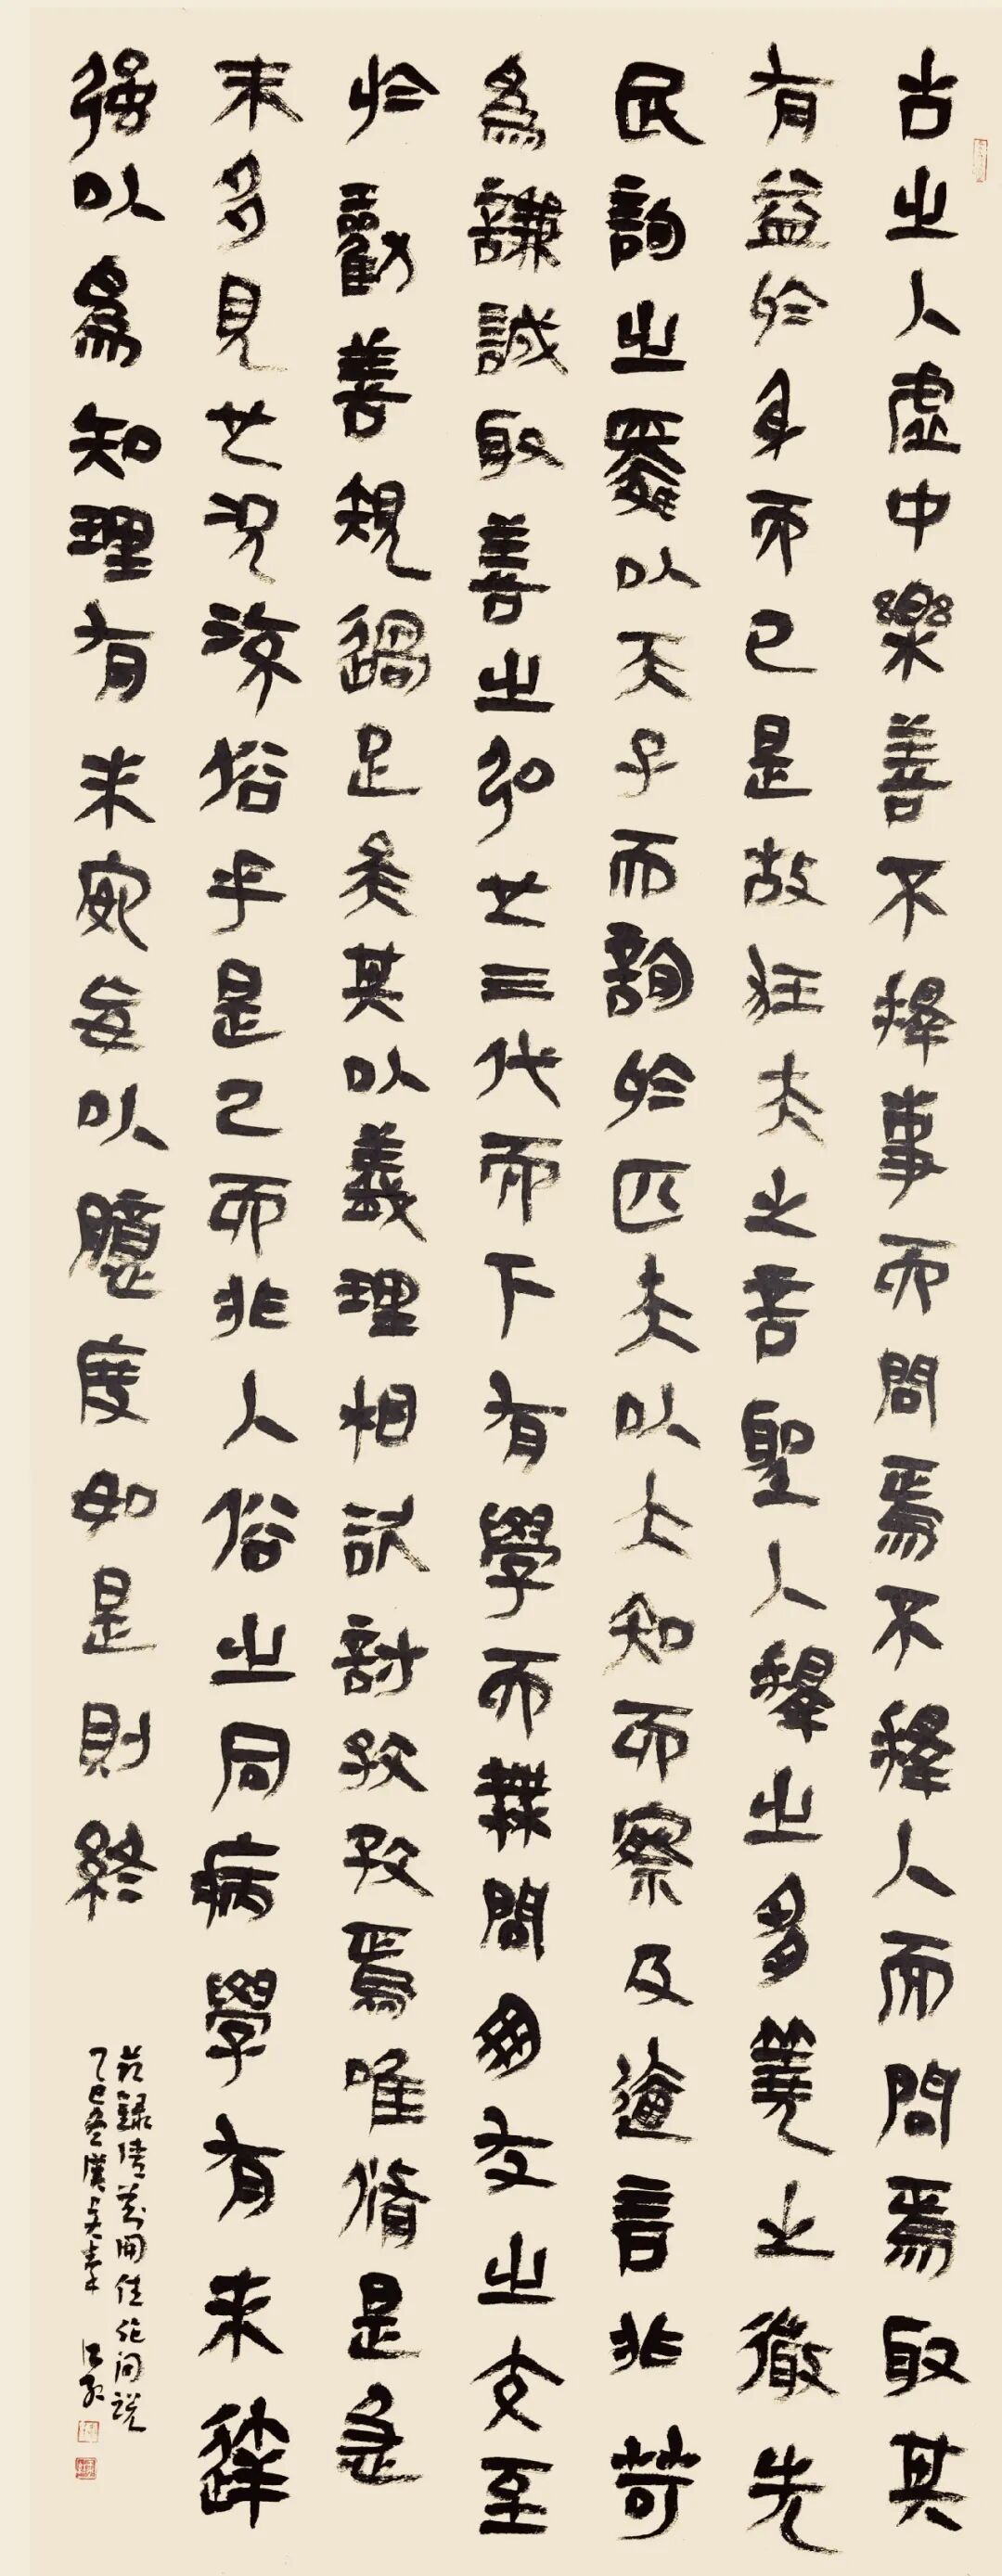 古之人虛中樂善不擇事而問焉不擇人而問焉取其
有益於身而已是故狂夫之言聖人擇之芻蕘之微先
民詢之舜以天子而詢於匹夫以大知而察及邇言非苟
為謙誠取善之弘也三代而下有學而無問朋友之交至
於勸善規過足矣其以義理相討孜孜焉唯脩是急
未多見也況流俗乎是己而非人俗之同病學有未達
強以為知理有未安妄以臆度如是則終
節錄清劉開佳作問說
乙巳冬